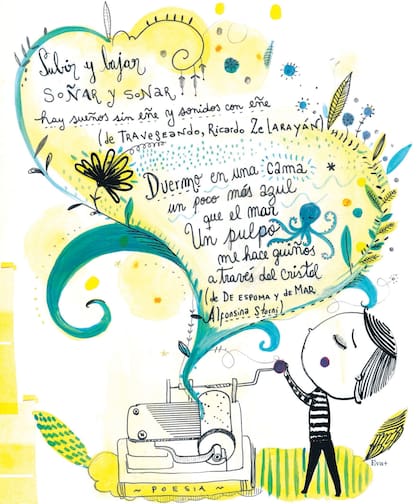 Subir y bajar
SOÑAR Y SONAR
hay sueños sin eñe y sonidos con eñe
(de TRAVESEANDO, Ricardo ZeLARAYÁN)
Duermo en una cama
un poco más azul
que el mar
Un pulpo
me hace guiños
a través del cristal
(de DE ESPUMA y de MAR
Alfonsina Storni)
~ POESIA ~
Eva+